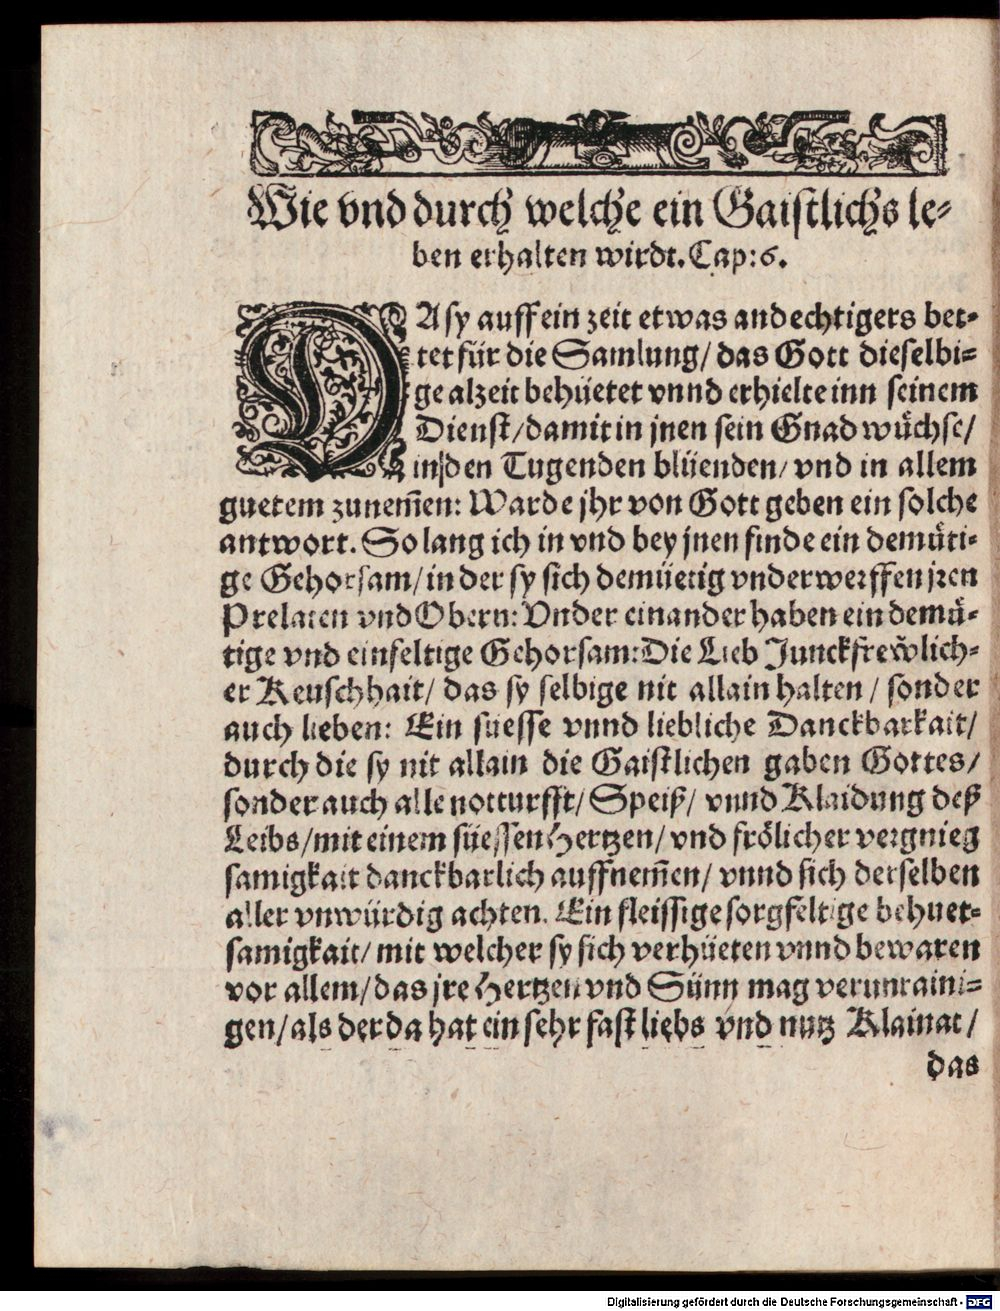 Wie vnd durch welche ein Gaistlichs le⸗
ben erhalten wirdt. Cap: 6.
DA sy auff ein zeit etwas andechtigers bet⸗
tet für die Samlung/ das Gott dieselbi⸗
ge alzeit behüetet vnnd erhielte inn seinem
Dienst/ damit in jnen sein Gnad wůchse/
in den Tugenden blüenden/ vnd in allem
guetem zunem̄en: Warde jhr von Gott geben ein solche
antwort. So lang ich in vnd bey jnen finde ein demůti⸗
ge Gehorsam/ in der sy sich demüetig vnderwerffen jren
Prelaten vnd Obern: Vnder einander haben ein demů⸗
tige vnd einfeltige Gehorsam: Die Lieb Junckfrewlich⸗
er Keuschhait/ das sy selbige nit allain halten / sonder
auch lieben: Ein süesse vnnd liebliche Danckbarkait/
durch die sy nit allain die Gaistlichen gaben Gottes/
sonder auch alle notturfft/ Speiß/ vnnd Klaidung deß
Leibs/ mit einem süessen Hertzen/ vnd frölicher vergnieg
samigkait danckbarlich auffnem̄en/ vnnd sich derselben
aller vnwürdig achten. Ein fleissige sorgfeltige behuet⸗
samigkait/ mit welcher sy sich verhüeten vnnd bewaren
vor allem/ das jre Hertzen vnd Sünn mag verunraini⸗
gen/ als der da hat ein sehr fast liebs vnd nutz Klainat/
das
Digitalisierung gefördert durch die Deutsche Forschungsgemeinschaft - DFG